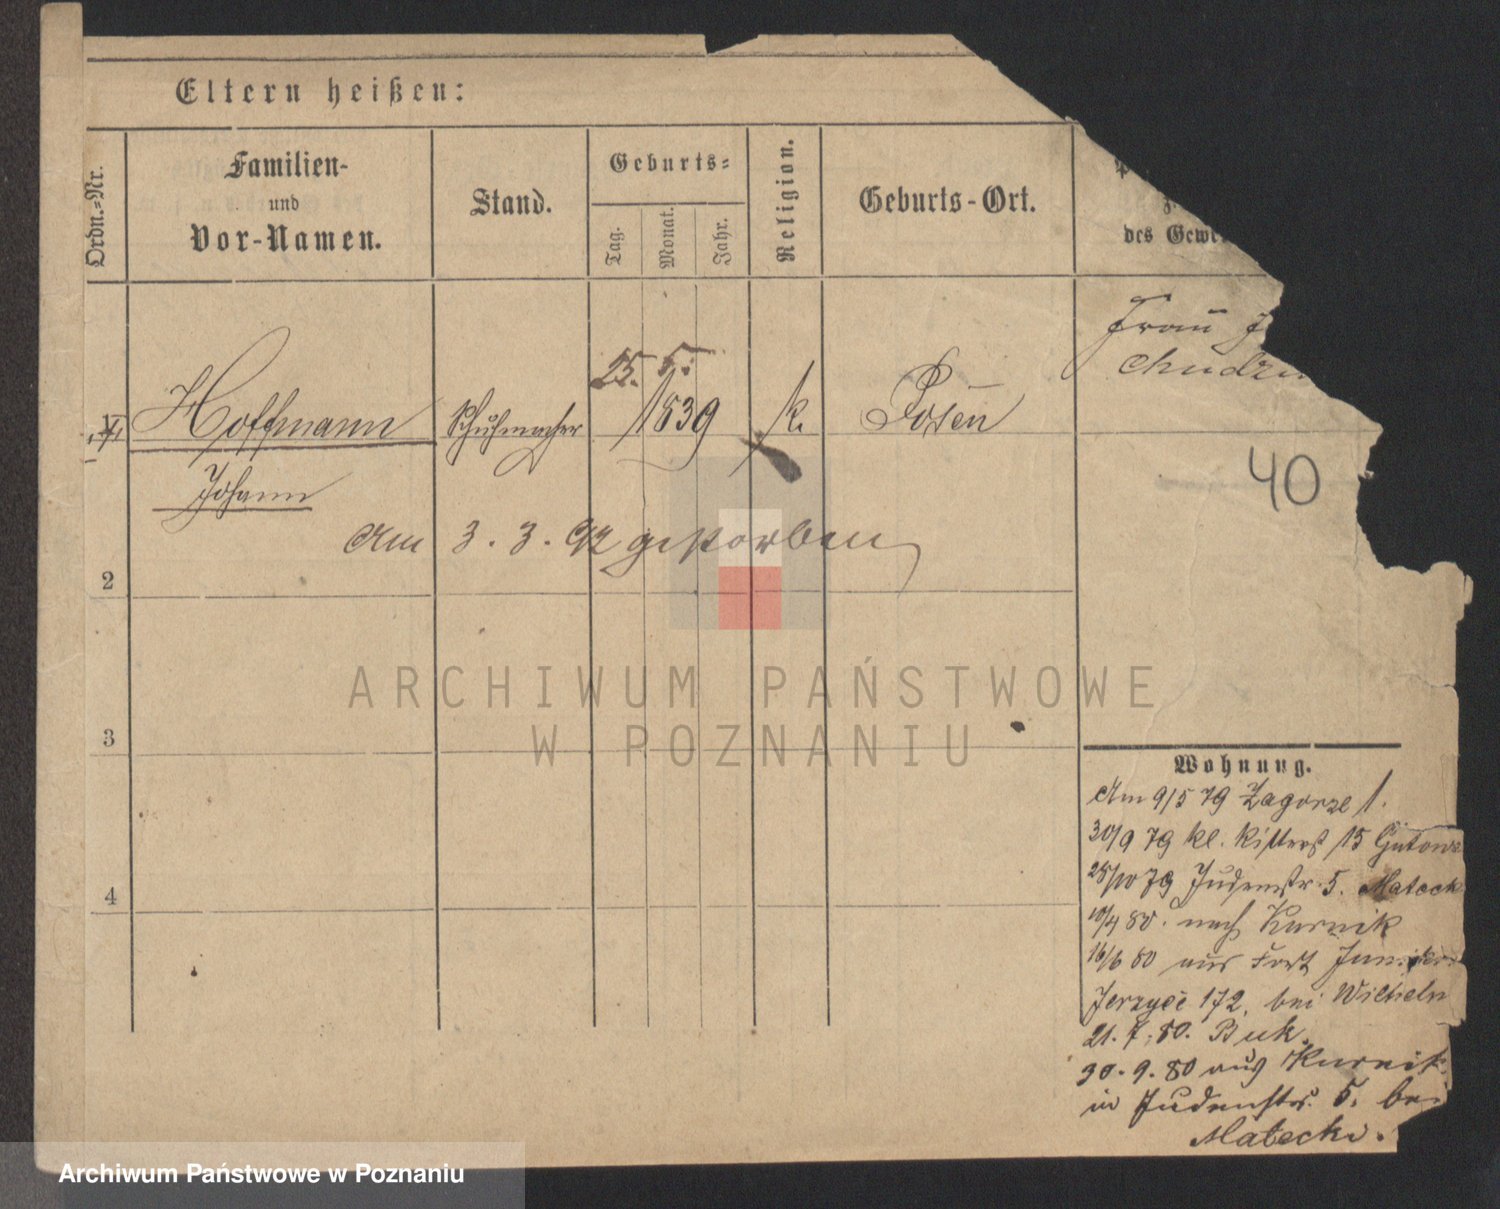 Eltern heißen:
Ordn.-Nr.
Familien-
und
Vor-Namen.
Stand.
Geburts-
Tag.
Monat.
Jahr.
Religion.
Geburts-Ort.
des Gewe
Frau
Chudzi
25. 5.
1 Hoffmann Schuhmacher 1839 k. Posen
Johann
40
Am 3. 3. 92 gestorben
2
3
4
Wohnung.
Am 9/5 79 Zagorze 1.
30/9 79 kl. Ritterst 15 Gutows
25/10 79 Judenstr. 5. Mateck
10/4 80. nach Kurnik
16/6 80 aus Fort
Jerzyce 172, bei Wilhelm
21. 7. 80. Buk.
30. 9. 80 aus Kurnik
in Judenstr. 5. bei
Matecki.
ARCHIWUM PAŃSTWOWE
W POZNANIU
Archiwum Państwowe w Poznaniu